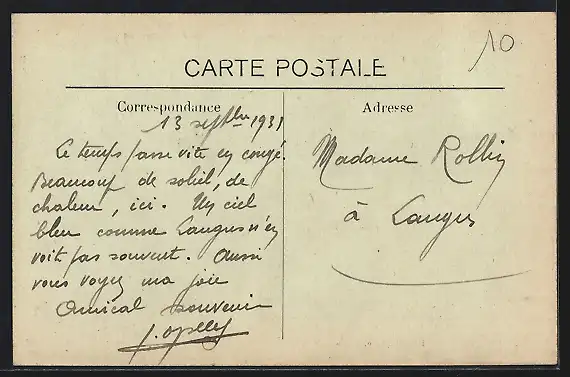 10
CARTE POSTALE
Correspondance
Adresse
13 septbre 1931
Le temps passe vite en congé.
Beaucoup de soleil, de
chaleur, ici. Un ciel
bleu comme Langres n'en
voit pas souvent. Aussi
vous voyez ma joie
Amical souvenir
Madame Rollin
à Langres